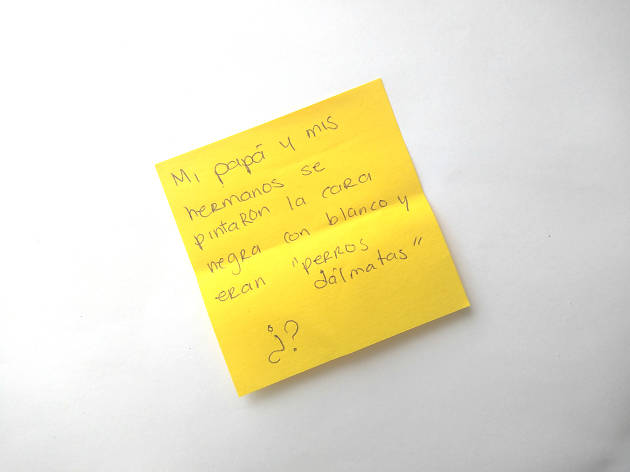 Mi papá y mis
hermanos se
pintaron la cara
negra con blanco y
eran "perros
dálmatas"
¿?